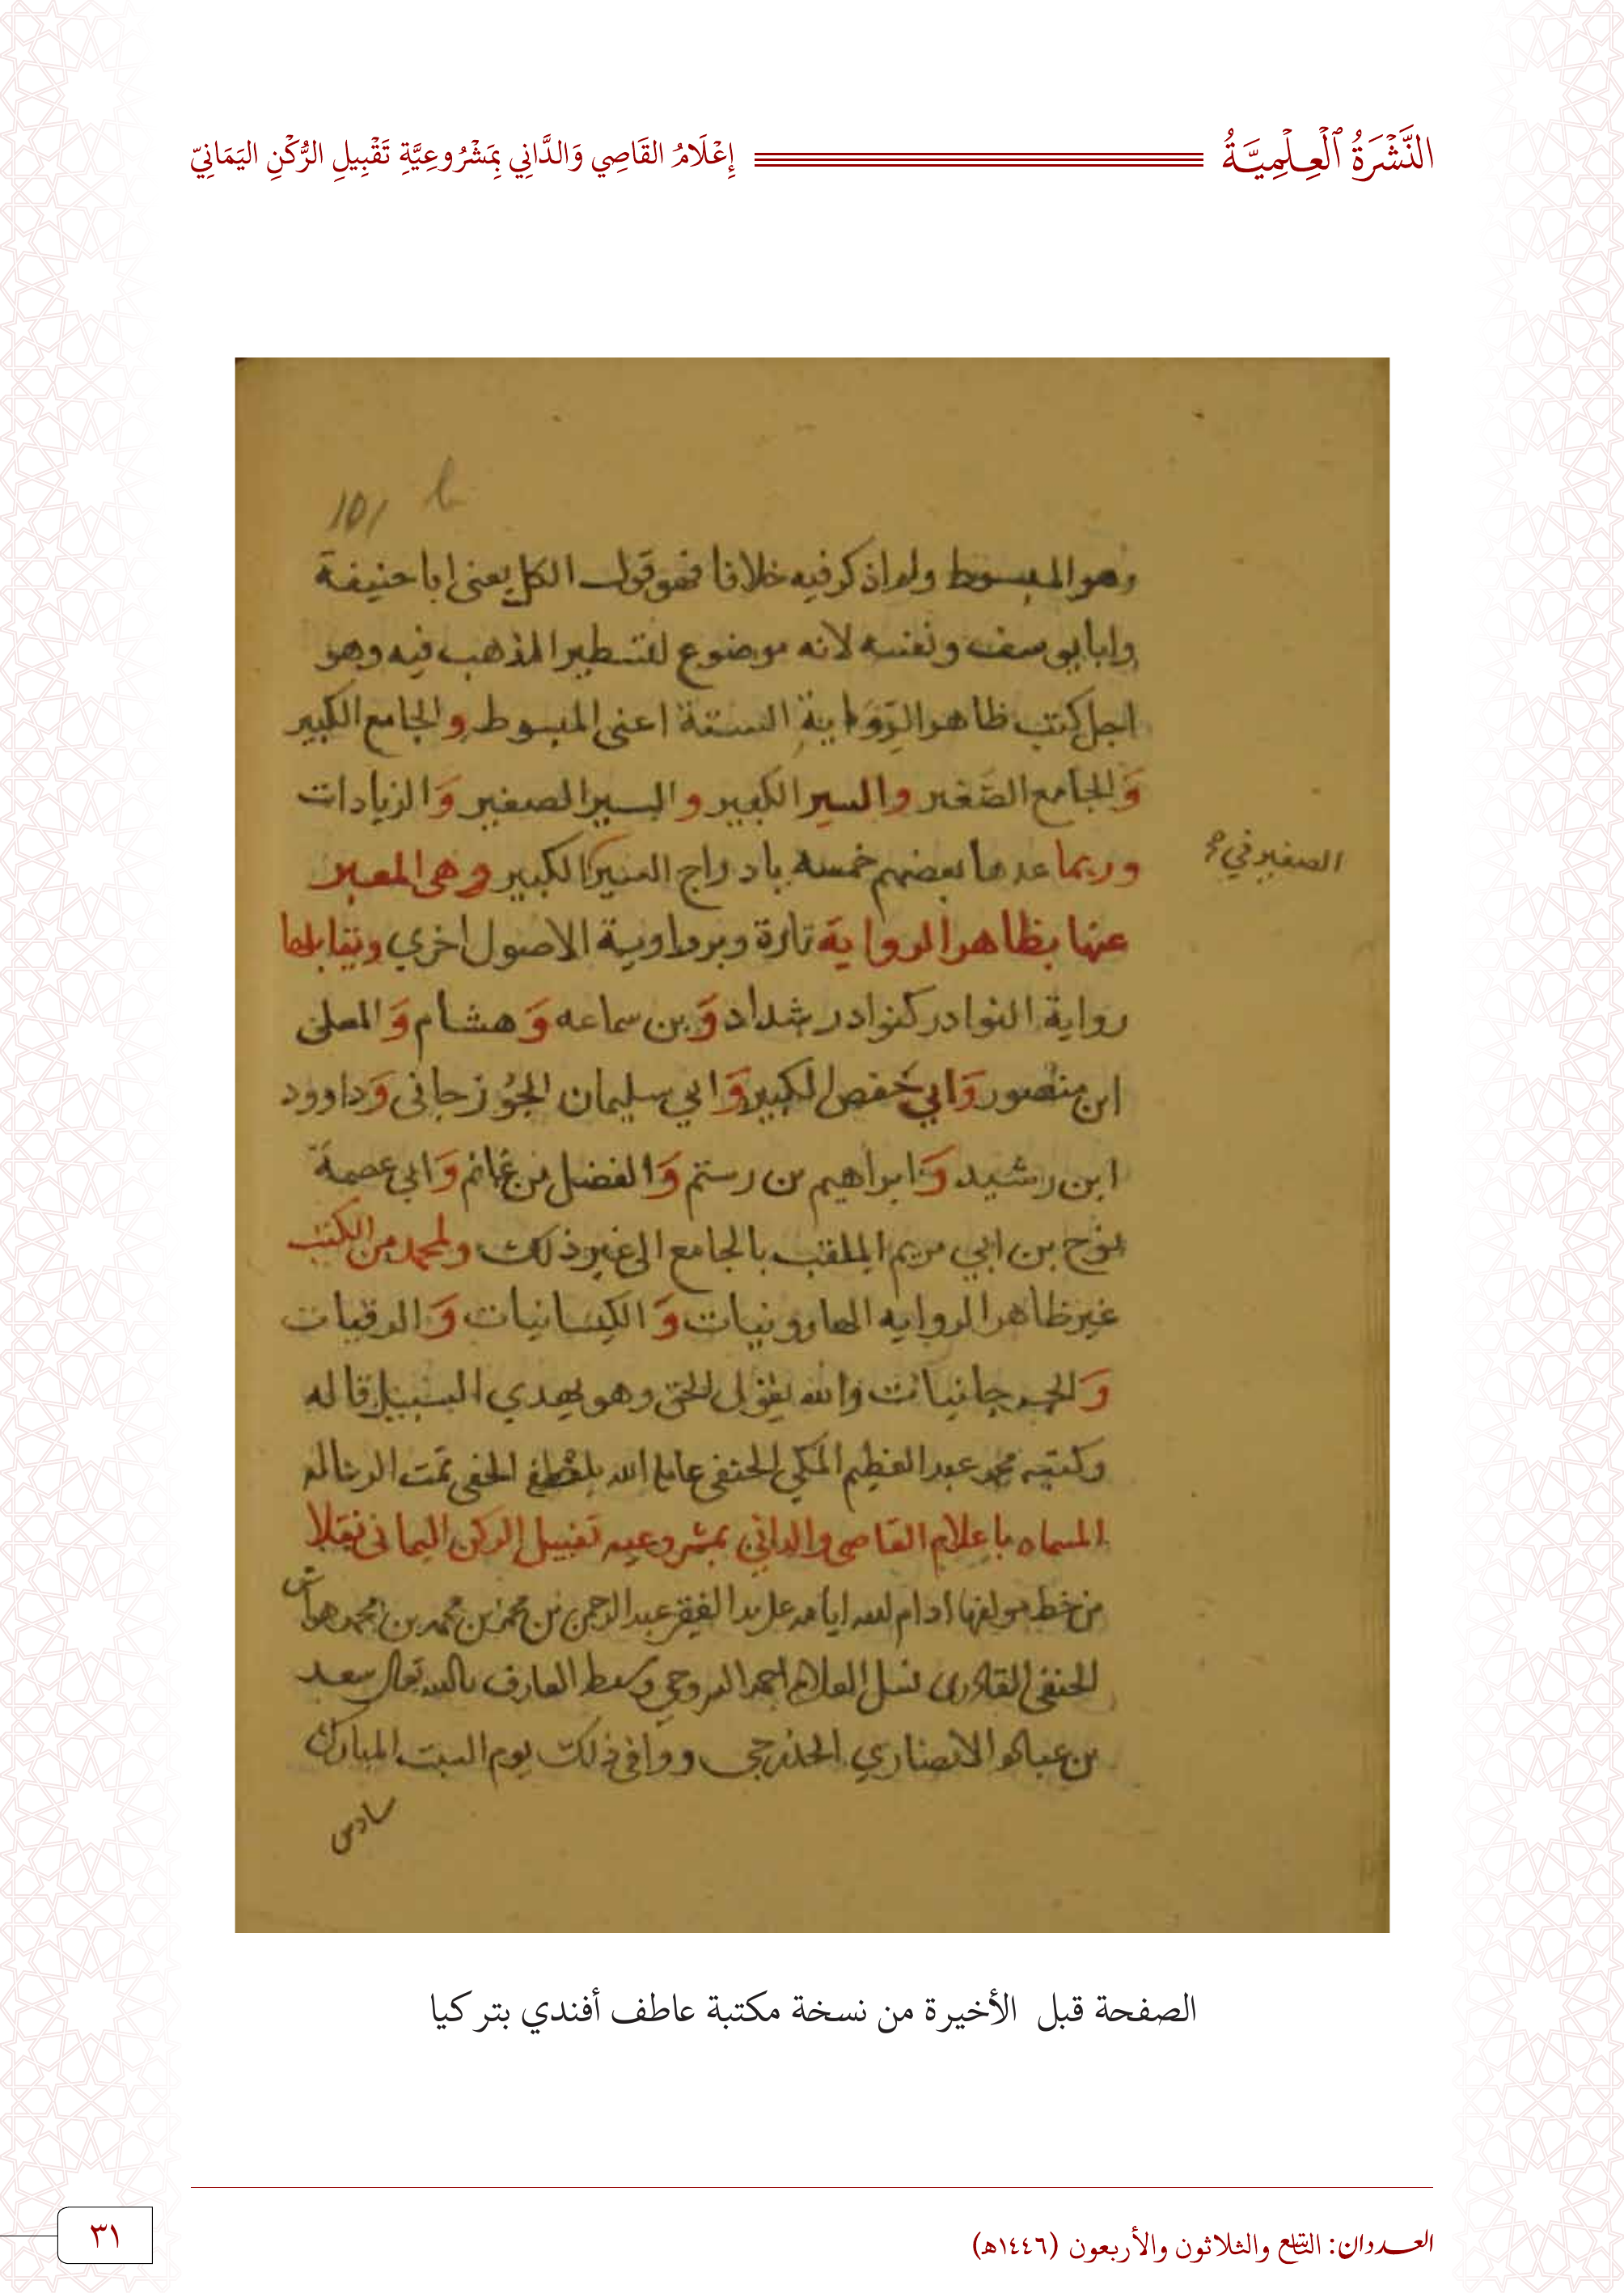 النَّشْرَةُ ٱلْعِلْمِيَّةُ
إِعْلَامُ القَاصِي وَالدَّانِي بِمَشْرُوعِيَّةِ تَقْبِيلِ الرُّكْنِ اليَمَانِيّ
101
وهو المبسوط ولم اذكر فيه خلافا فهو قول الكل يعني ابا حنيفة
وابا يوسف ونفسه لانه موضوع لتسطير المذهب فيه وهو
اجل كتب ظاهر الرواية الستة اعني المبسوط والجامع الكبير
وَالجامع الصغير والسير الكبير والسير الصغير وَالزيادات
وربما عدها بعضهم خمسه بادراج السير الكبير وهي المعبر
الصغير في
عنها بظاهر الرواية تارة وبرواوية الاصول اخري ويقابلها
رواية النوادر كنوادر شداد وَبن سماعه وَهشام وَالمعلى
ابن منصور وَابي حفص الكبير وَابي سليمان الجُوزجاني وَداوود
ابن رشيد وَابراهيم بن رستم وَالفضل بن غانم وَابي عصمة
نوح بن ابي مريم الملقب بالجامع الى غير ذلك ولمحمد من الكتب
غير ظاهر الروايه الهارونيات وَالكيسانيات وَالرقيات
وَالجرجانيات والله يقول الحق وهو يهدي السبيل قاله
وكتبه محمد عبد العظيم المكي الحنفي عامله الله بلطفه الخفي تمت الرساله
المسماه باعلام القاصي والداني بمشروعيه تقبيل الركن اليماني نقلا
من خط مولفها ادام الله ايامه على يد الفقير عبد الرحمن بن محمد بن محمد بن محمد هواش
الحنفي القادري نسل العلامه احمد السروجي وسبط العارف بالله تعالى سعد
بن عباده الانصاري الخذرجي ووافق ذلك يوم السبت المبارك
سادس
الصفحة قبل الأخيرة من نسخة مكتبة عاطف أفندي بتركيا
العددان: التاسع والثلاثون والأربعون (١٤٤٦هـ)
٣١